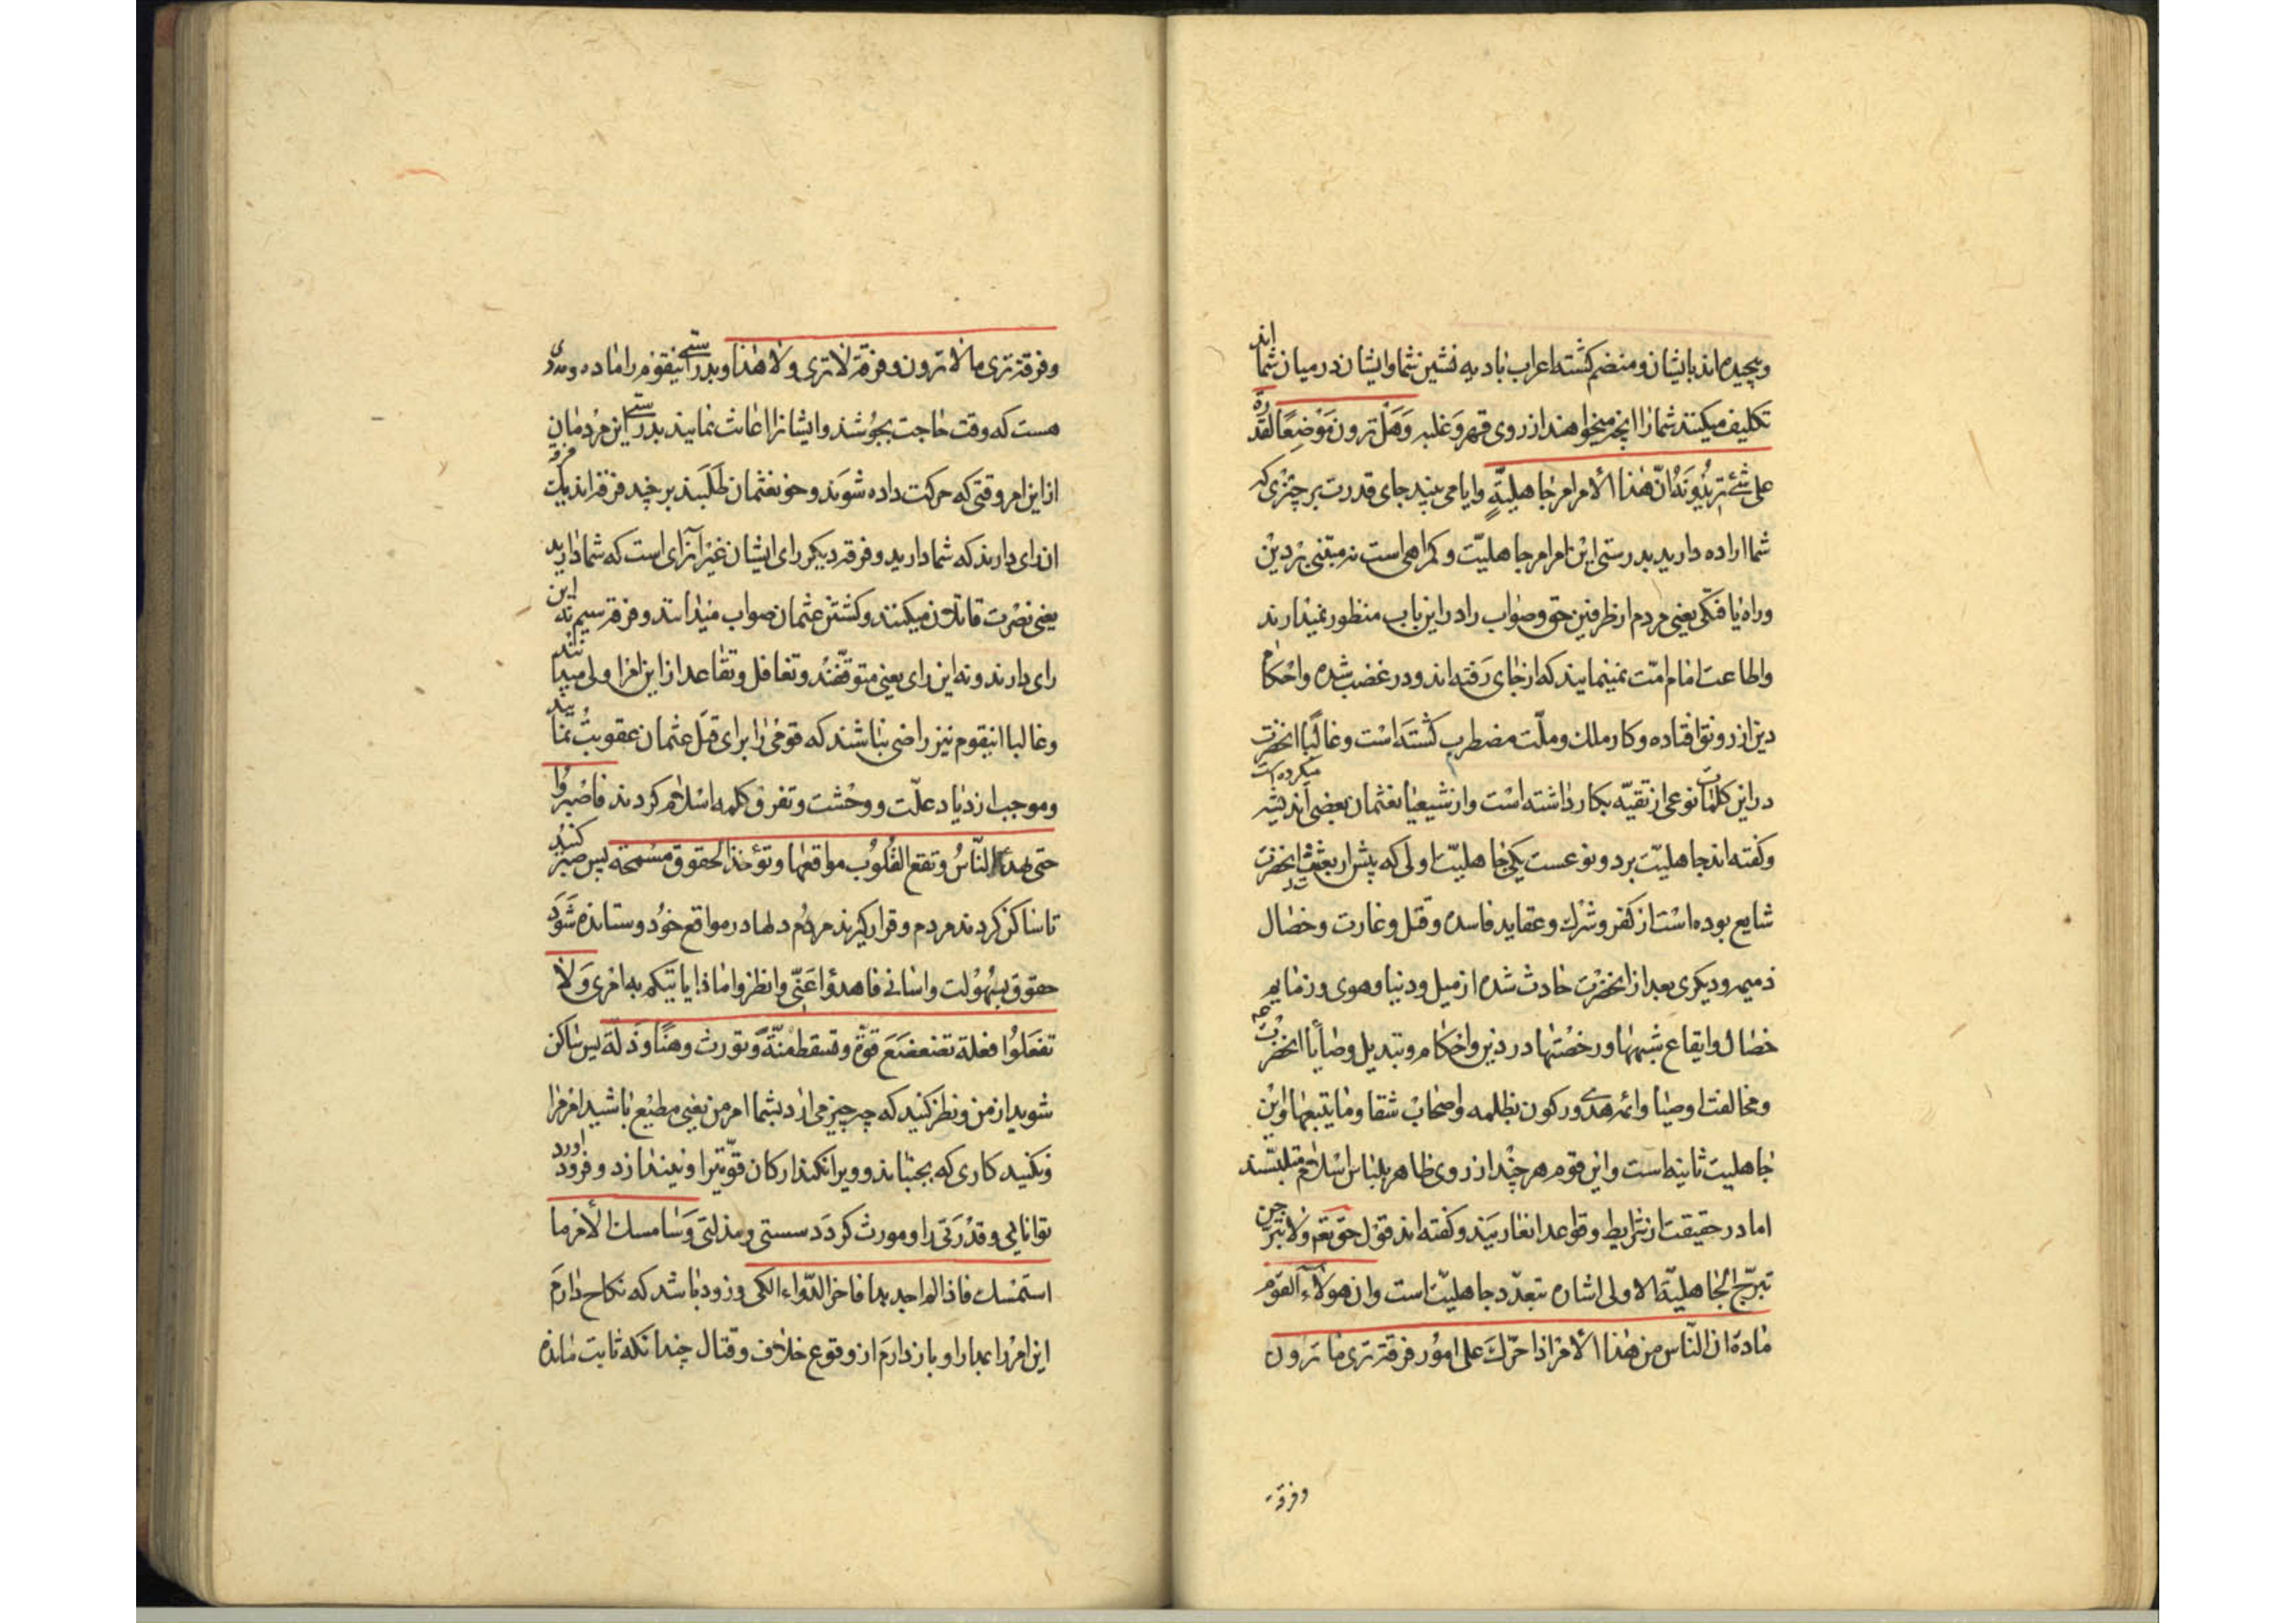 وپیچیده‌اند بایشان و منضم کشته اعراب بادیه نشین شما و ایشان در میان شما اند
تکلیف میکنند شما را انچه میخواهند از روی قهر و غلبه وَهَل ترون مَوْضِعًا لقدرة
علی شئ تریدونَه اِنّ هٰذا الأمر امر جاهلیّةٍ وایا می بینید جای قدرت بر چیزی که
شما اراده دارید بدرستی این امر امر جاهلیّت و کمراهی است نه مبتنی بر دین
و راه یعنی مردم از طرفین حق و صواب را در این باب منظور نمیدارند
و اطاعت امام امّت نمینمایند که از جای رَفته‌اند و در غضب شده و احکام
دین از رونق افتاده و کار ملک و ملّت مضطرب کشتَه است و غالبًا انحضرت
در این کلمات نوعی از تقیّه بکار داشته است و از شیعیان عثمان بعضی اندیشه میکرده است
و کفته‌اند جاهلیّت بر دو نوعست یکی جاهلیّت اولی که پیش از بعثت انحضرت
شایع بوده است از کفر و شرک و عقاید فاسده و قتل و غارت و خصال
ذمیمه و دیکری بعد از انحضرت حادث شده از میل ودنیا و هوی و رذایم
خصال و ایقاع شبهها و رخصتها در دین و احکام و تبدیل وصایا انحضرت
و مخالفت اوصیا و ائمه هدی و رکون بظلمه و اصحاب شقا وما یتبعها و این
جاهلیت ثانیه است و این قوم هر چند از روی ظاهر بلباس اسلام متلبسند
اما در حقیقت از شرایط و قواعد ان عاریَند و کفته‌اند قول حق تعم ولا تبرّجن
تبرّج الجاهلیّة الاولی اشاره بتعدّد جاهلیّت است وان هؤلآءِ القوم
مادة ان النّاس من هٰذا الأمر اذا حرّک علی امور فرقة تری ما ترون
وفرقة
وفرقة تری ما لا ترون و فرقة لا تری ولا هٰذا و بدرستی اینقوم را ماده و مددی
هست که وقت حاجت بجوشند و ایشانرا اعانت نمایند بدرستی این مردمان
از این امر وقتی که حرکت داده شوند و خون عثمان طَلَبند بر چند فرقه‌اند یک فرقه
ان رای دارند که شما دارید و فرقه دیکر رای ایشان غیر آنرای است که شما دارید
یعنی نصرت قاتلان میکنند و کشتن عثمان صواب میدانند و فرقه سیم نه این
رای دارند و نه این رای یعنی متوقّفند و تغافل و تقاعد از این امر اولی میدانند
و غالبا اینقوم نیز راضی نباشند که قومی را برای قتل عثمان عقوبت نمایید
و موجب ازدیاد علّت و وحشت و تفرق کلمه اسلام کردند فاصبروا
حتی یهدأ النّاسُ وتقع القُلُوبُ مواقعها وتؤخذ الحقوق مسمحة پس صبر کنید
تا ساکن کردند مردم و قرار کیرند مردم دلها در مواقع خود و ستانده شَوَد
حقوق بسهولت و اسانی فاهدؤا عَنّی وانظروا ماذا یاتیکم به امری ولا
تفعَلُوا فعلة تضعضَع قوّة وتسقط منّة وتورث وهنًا وذلّة پس ساکن
شوید از من و نظر کنید که چه چیز می ارد بشما امر من یعنی مطیع باشید امر مرا
و نکنید کاری که بجنباند و ویران کند ارکان قوّتیرا و بیندازد و فرود اورد
توانایی و قدرتی را و مورث کردد سستی و مذلتی وَسَامسک الأمر ما
استمسک فاذا لم اجد بدا فاخر الدّواء الکی و زود باشد که نکاح دارَم
این امر را بمدارا و باز دارم از وقوع خلاف و قتال چندانکه ثابت مانده